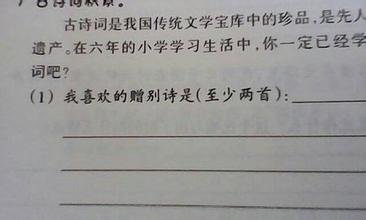 古诗词积累。
古诗词是我国传统文学宝库中的珍品,是先人
遗产。在六年的小学学习生活中,你一定已经学
词吧?
(1) 我喜欢的赠别诗是(至少两首):